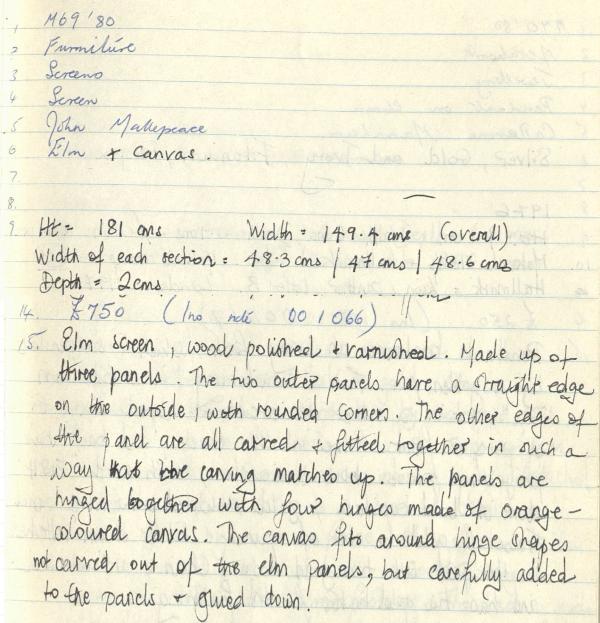 1 M69 '80
2 Furniture
3 Screens
4 Screen
5 John Makepeace
6 Elm + Canvas.
7.
8.
9. Ht = 181 cms Width = 149.4 cms (overall)
Width of each section = 48.3 cms / 47 cms / 48.6 cms
Depth = 2 cms
14. £750 (Ino note 001066)
15. Elm screen, wood polished + varnished. Made up of
three panels. The two outer panels have a straight edge
on the outside, with rounded corners. The other edges of
the panel are all carved + fitted together in such a
way that the carving matches up. The panels are
hinged together with four hinges made of orange-
coloured canvas. The canvas fits around hinge shapes
not carved out of the elm panels, but carefully added
to the panels + glued down.